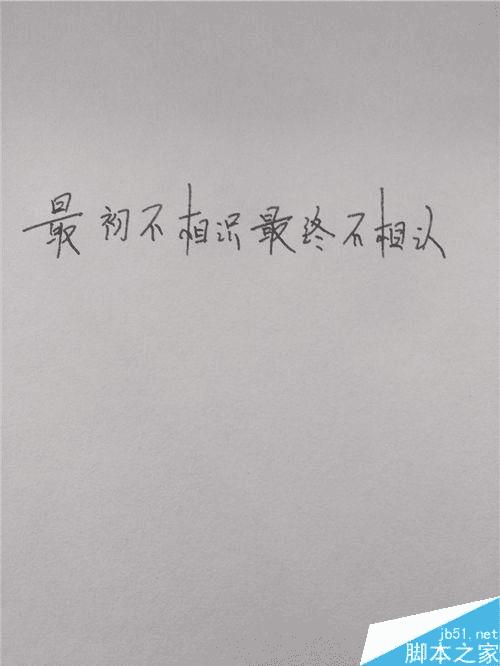 最初不相识最终不相认
jb51.net
脚本之家